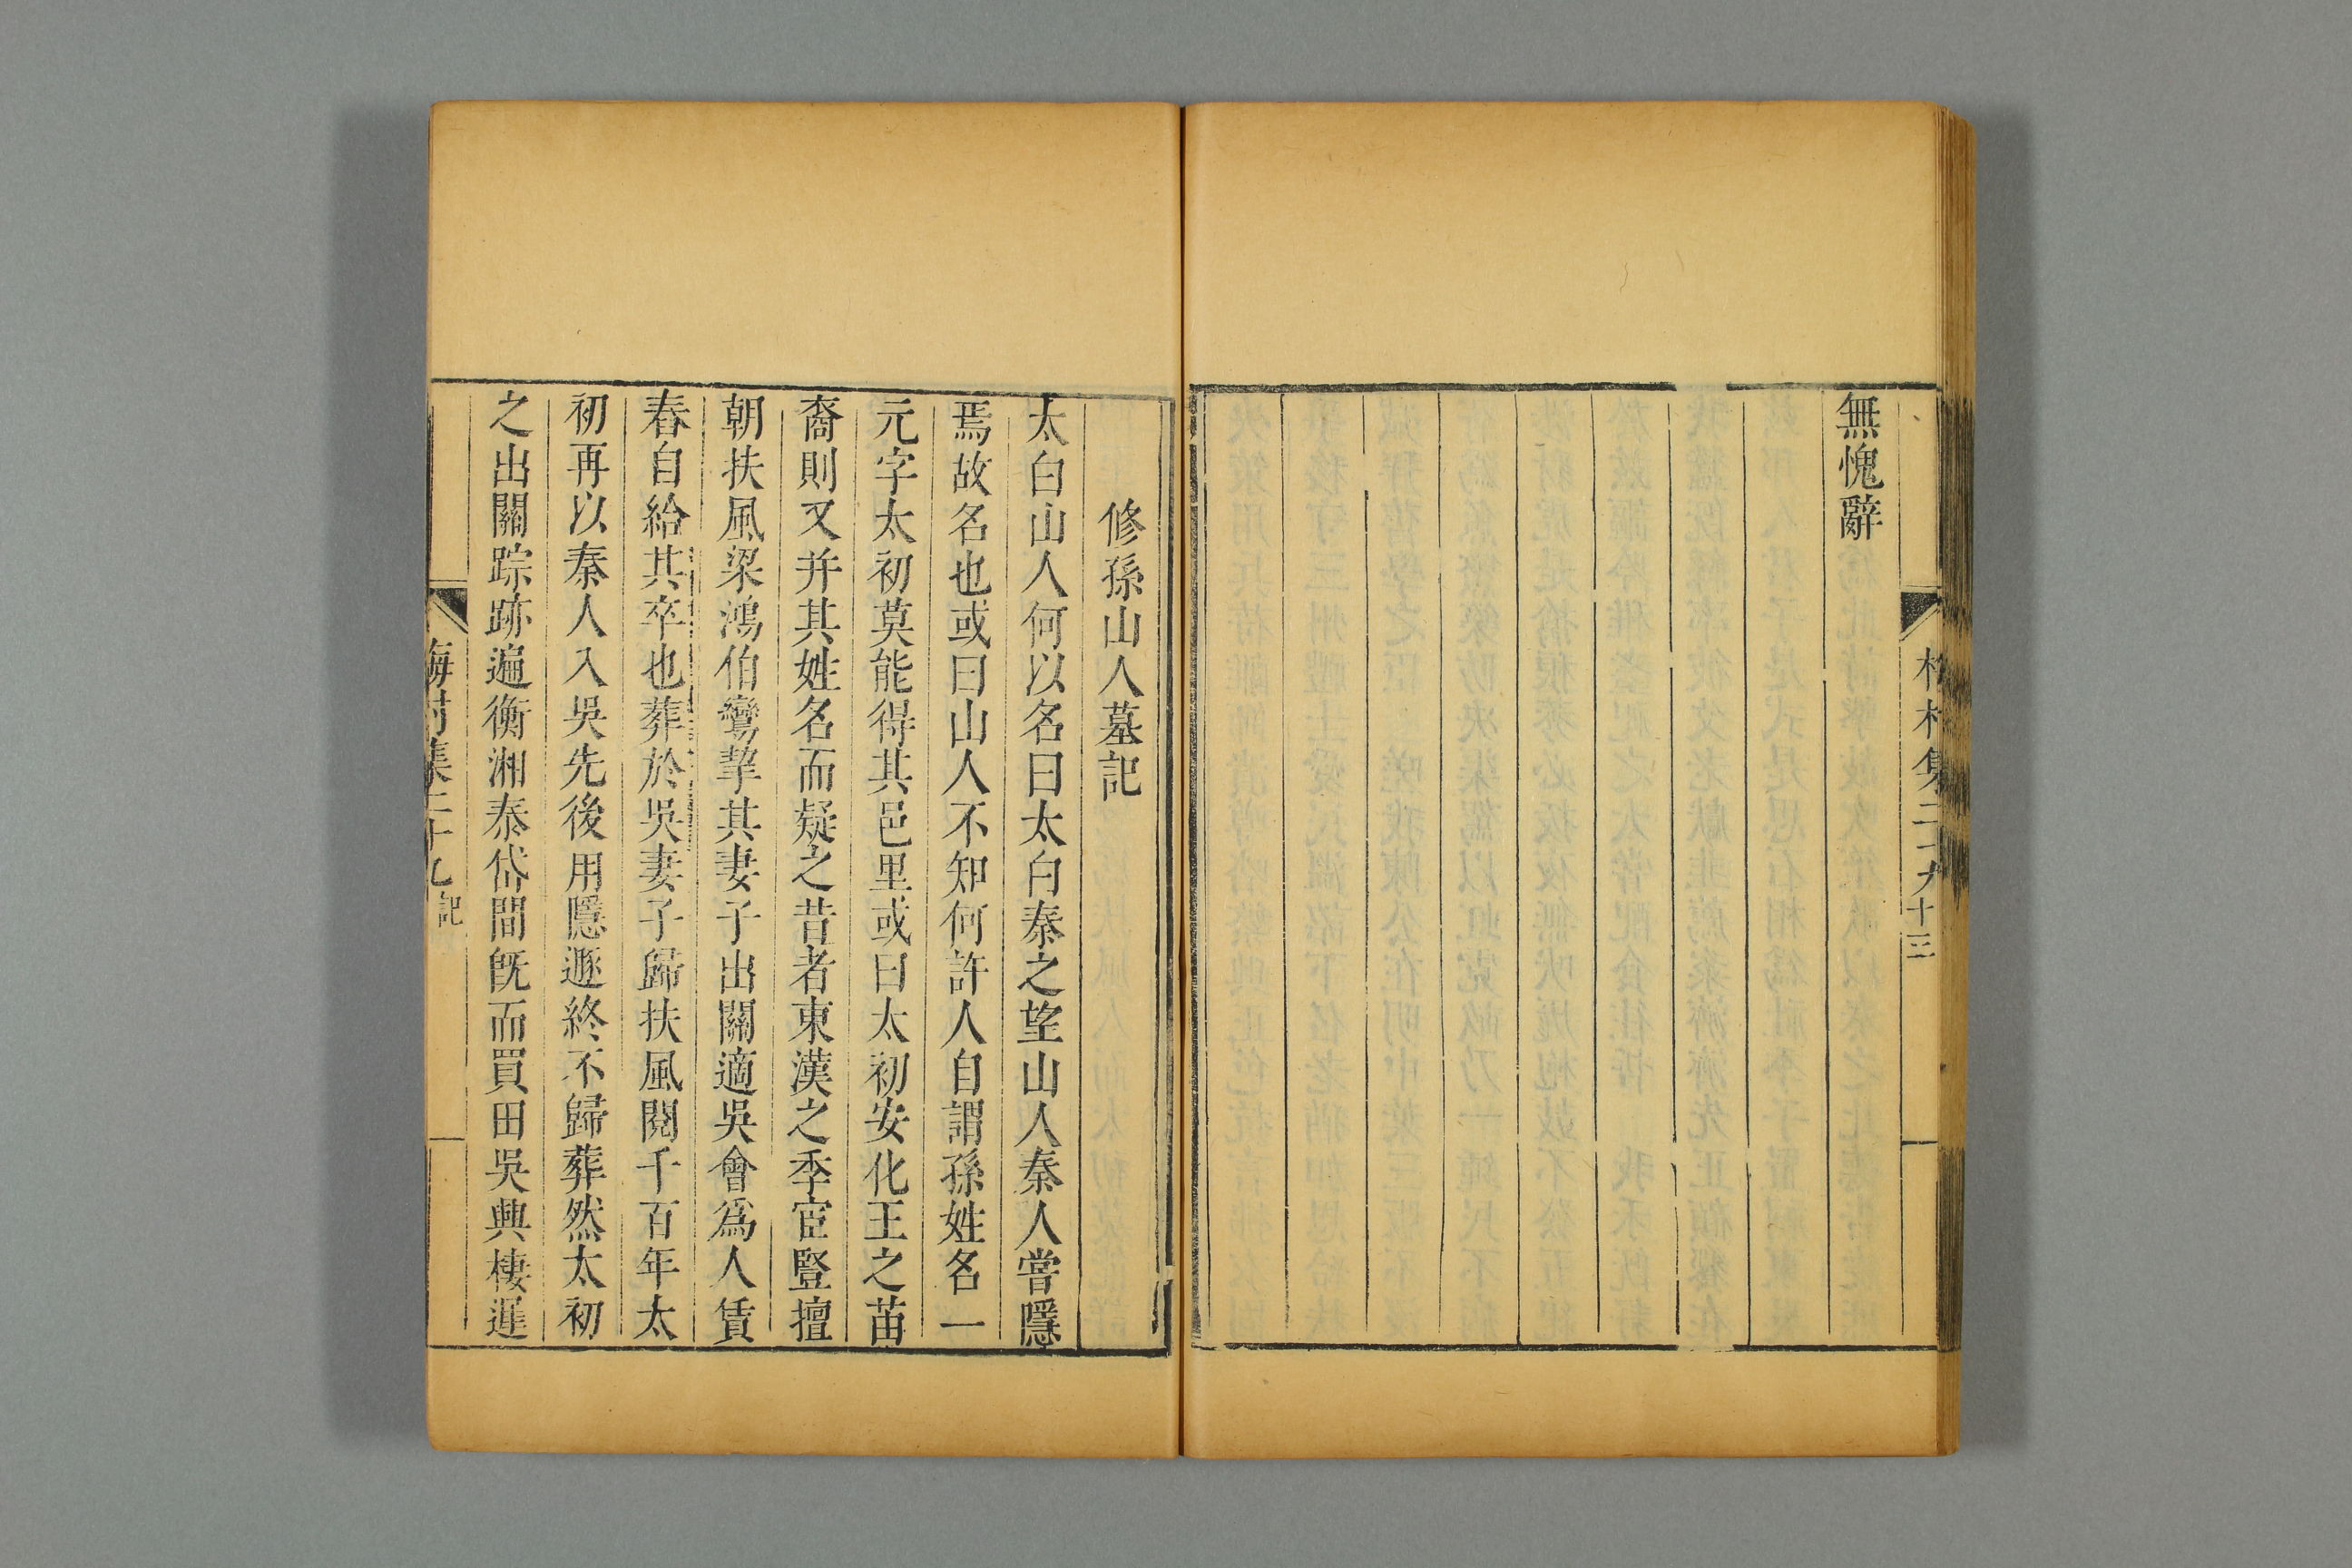 無愧辭
村集二十九
十三
修孫山人墓記
太白山人何以名曰太白秦之望山人秦人嘗隱
焉故名也或曰山人不知何許人自謂孫姓名一
元字太初莫能得其邑里或曰太初安化王之苗
裔則又并其姓名而疑之昔者東漢之季宦豎擅
朝扶風梁鴻伯鸞挈其妻子出關適吳會爲人賃
舂自給其卒也葬於吳妻子歸扶風閱千百年太
初再以秦人入吳先後用隱遯終不歸葬然太初
之出關踪跡遍衡湘泰岱間旣而買田吳興棲遲
梅村集二十九
記